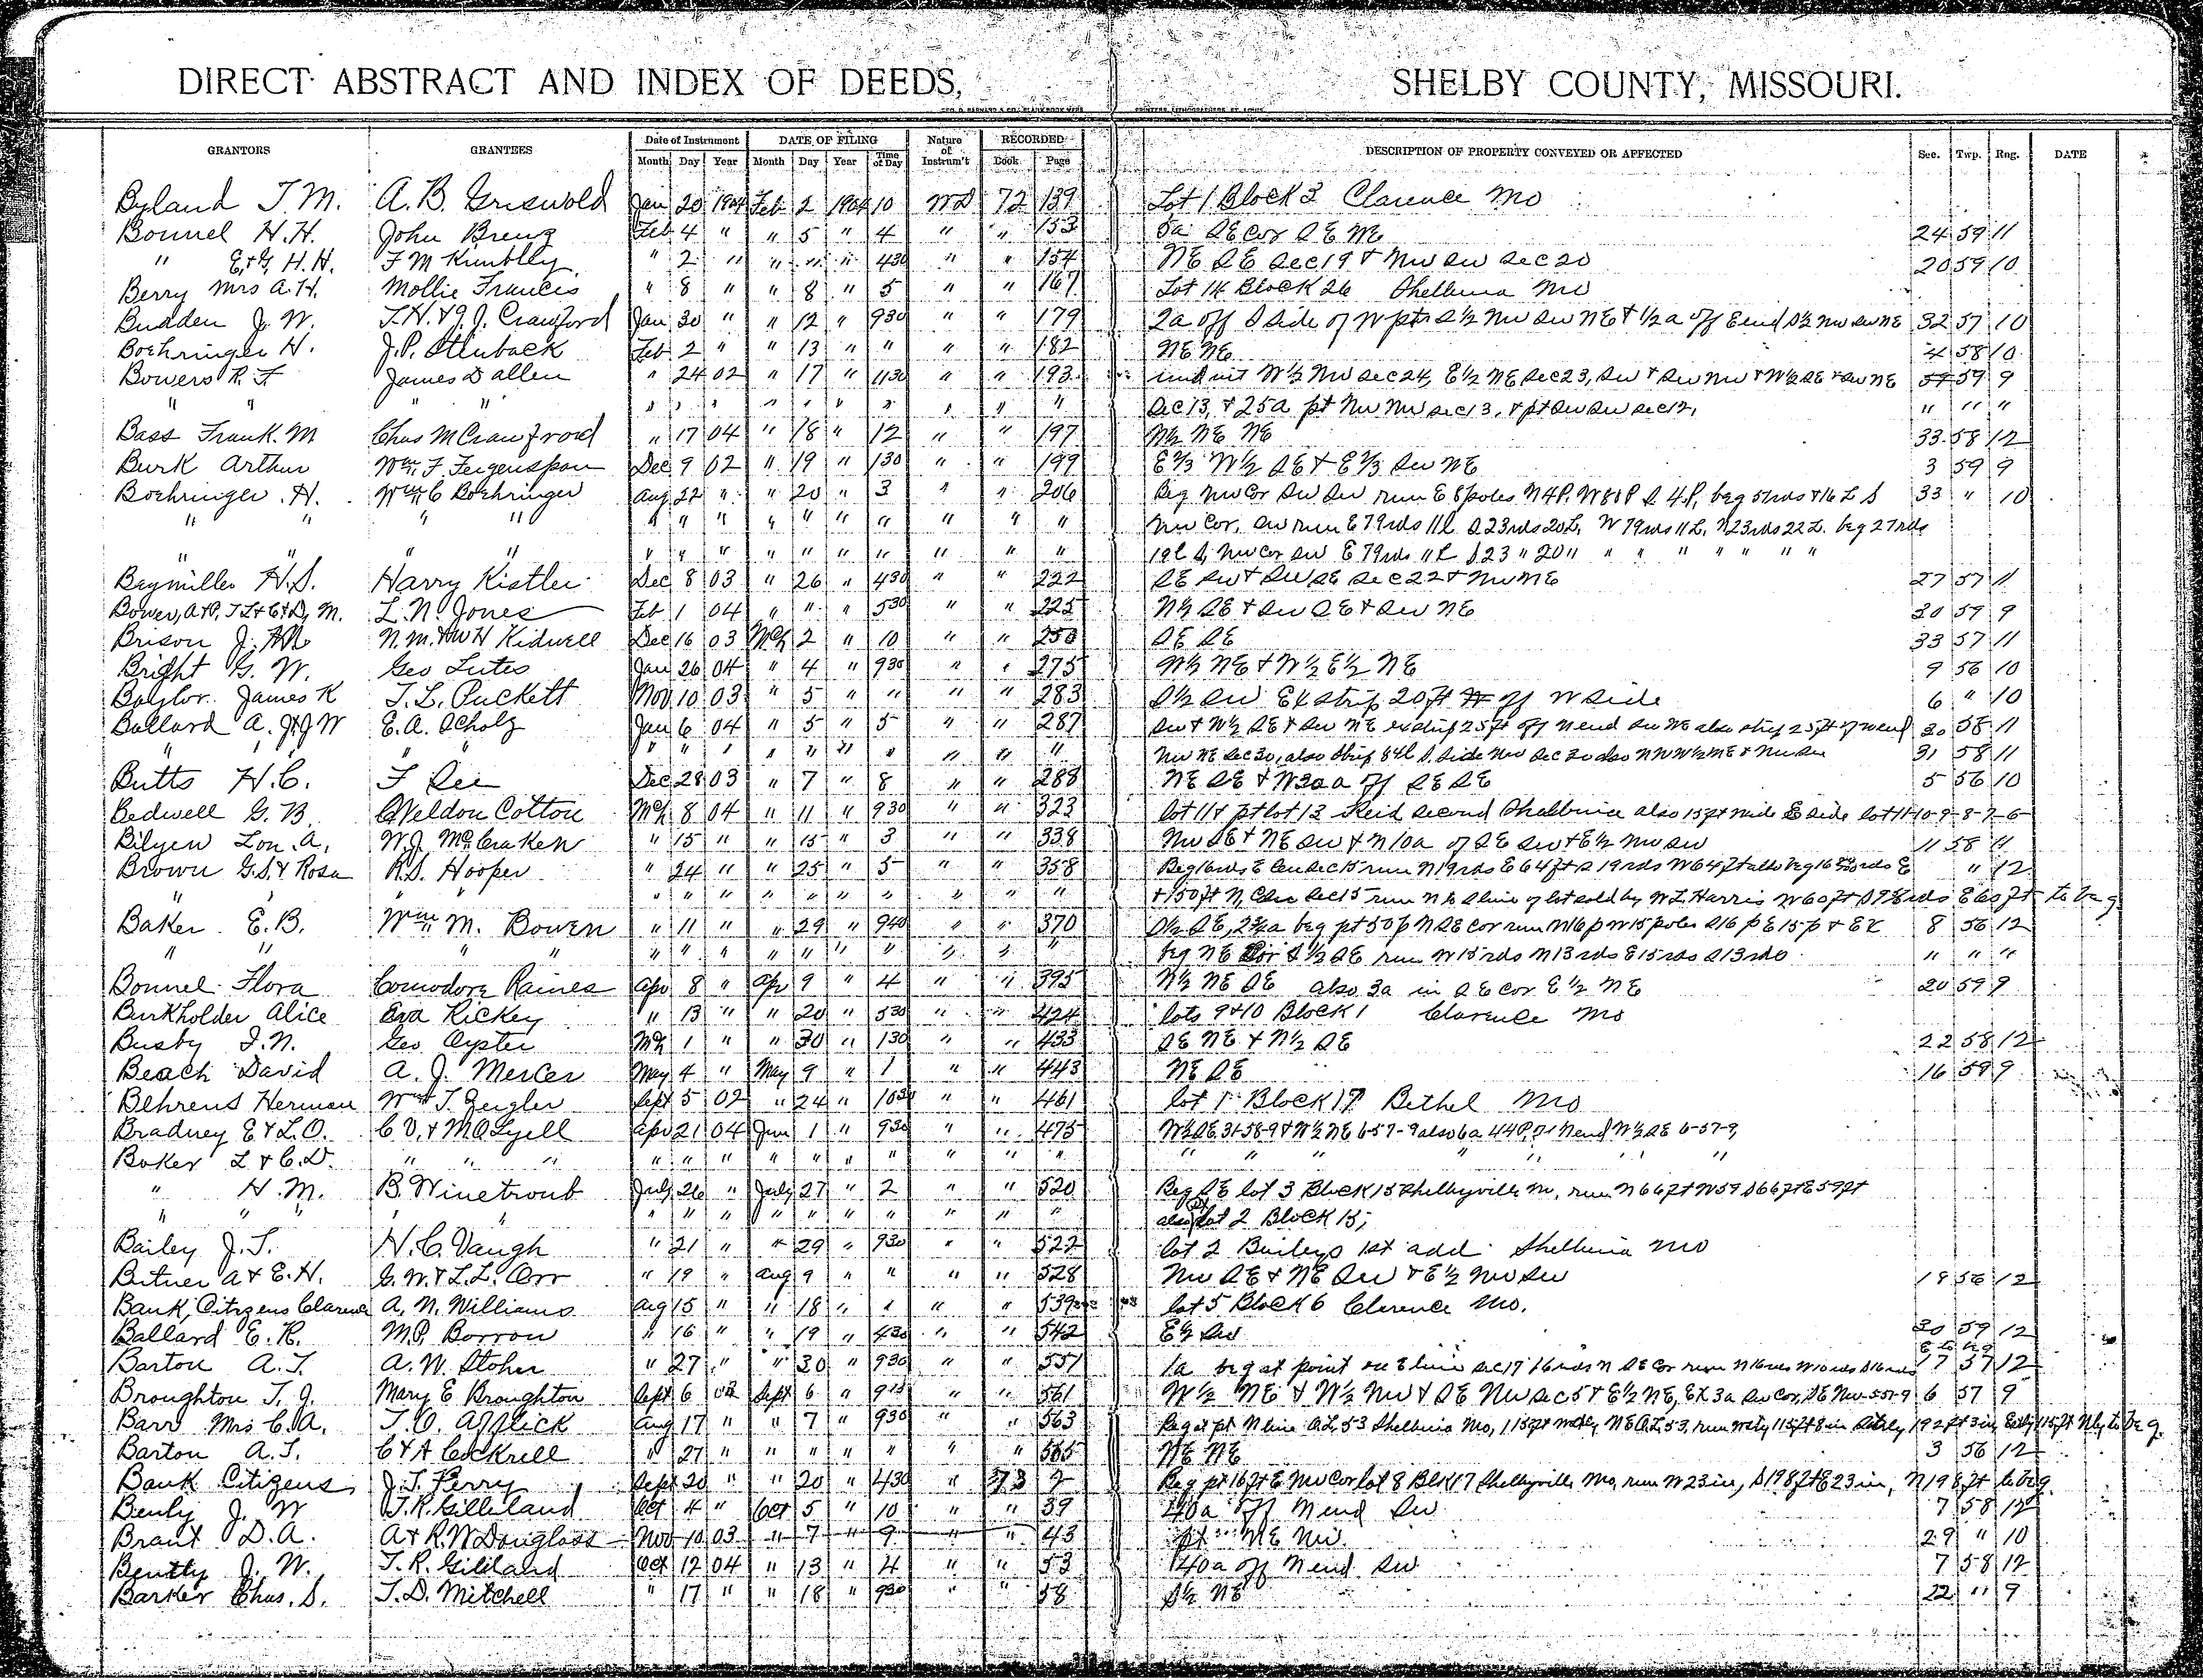 DIRECT ABSTRACT AND INDEX OF DEEDS, SHELBY COUNTY, MISSOURI.
GRANTORS GRANTEES Date of Instrument DATE OF FILING Nature of Instrum't RECORDED DESCRIPTION OF PROPERTY CONVEYED OR AFFECTED Sec. Twp. Rng. DATE
Month Day Year Month Day Year Time of Day Book Page
Byland T. M. A. B. Griswold Jan 20 1904 Feb 2 1904 10 WD 72 139 Lot 1 Block 3 Clarence Mo
Bonnel H. H. John Breng Feb 4 " " 5 " 4 " " 153 5a SE Cor SE NE 24 59 11
" E. & G. H. H. F M Kimbley " 2 " " " " 430 " " 154 NE SE Sec 19 & NW SW Sec 20 20 59 10
Berry Mrs A. H. Mollie Francis " 8 " " 8 " 5 " " 167 Lot 14 Block 26 Shelbina Mo
Budden J. W. T. H. & J. J. Crawford Jan 30 " " 12 " 930 " " 179 2a off S Side of W pt S½ NW SW NE & ½a off E end S½ NW SW NE 32 57 10
Boehringer H. J. P. Feb 2 " " 13 " " " " 182 NE NE 4 58 10
Bowers R. F James D Allen " 24 02 " 17 " 1130 " " 193 und int W½ NW Sec 24, E½ NE Sec 23, SW & SW NW & W½ SE & SW NE 59 9
" " " " " " " " " " " " " " Sec 13, & 25a pt NW NW Sec 13, & pt SW SW Sec 12, " " "
Bass Frank. M Chas M Crawfrord " 17 04 " 18 " 12 " " 197 N½ NE NE 33 58 12
Burk Arthur Wm. F. Feigenspan Dec 9 02 " 19 " 130 " " 199 E⅔ W½ SE & E⅔ SW NE 3 59 9
Boehringer. H. Wm C Boehringer Aug 22 " " 20 " 3 " " 206 Beg NW Cor SW SW run E 80 poles N 4P. W 80 P S 4.P, beg 51rds & 16 L S 33 " 10
" " " " " " " " " " " " " " NW Cor, SW run E 79rds 11L S 23rds 20L, W 79rds 11L, N 23rds 22L. beg 27rds
" " " " " " " " " " " " " " 19L S, NW Cor SW E 79rds 11L S 23 " 20 " " " " " " " "
Baymiller H. S. Harry Kistler Dec 8 03 " 26 " 430 " " 222 SE SW & SW SE Sec 22 & NW NE 27 57 11
Bower, A & P, J L & C & D, M. L. N. Jones Feb 1 04 " " " 530 " " 225 N½ SE & SW SE & SW NE 30 59 9
Brison J. N. M. & W H Kidwell Dec 16 03 Mch 2 " 10 " " 250 SE SE 33 57 11
Bright G. W. Geo Lutes Jan 26 04 " 4 " 930 " " 275 W½ NE & W½ E½ NE 9 56 10
Baylor. James K T. L. Puckett Nov 10 03 " 5 " " " " 283 S½ SW Ex strip 20 ft off W side 6 " 10
Ballard A. J. & J W E. A. Scholz Jan 6 04 " 5 " 5 " " 287 SW & W½ SE & SW NE ex strip 25 ft off N end SW NE also strip 25 ft off W end 30 58 11
" " " " " " " " " " " " " " NW NE Sec 30, also strip 84L S. side NW Sec 30 also N W½ NE & NW SW 31 58 11
Butts H. C. F See Dec 28 03 " 7 " 8 " " 288 NE SE & W 30a off SE SE 5 56 10
Bedwell G. B. Weldon Cotton Mch 8 04 " 11 " 930 " " 323 lot 11 & pt lot 12 Reid Second Shelbina also 15 ft wide E side lot 11-10-9-8-7-6
Bilyew Lon. A. W. J. McCraken " 15 " " 15 " 3 " " 338 NW SE & NE SW & N 10a of SE SW & E½ NW SW 11 58 11
Brown G. S. & Rosa R. S. Hooper " 24 " " 25 " 5 " " 358 Beg 16rds E Cen Sec 15 run N 19rds E 64 ft S 19rds W 64 ft also beg 16 rds E " 12
" " " " " " " " " " " " " & 150 ft N, Cen Sec 15 run N to S line of lot sold by W L Harris W 60 ft S rds E 60 ft to beg
Baker. E. B. Wm. M. Bowen " 11 " " 29 " 940 " " 370 S½ SE, 2¾a beg pt 50p N SE Cor run N 16p W 15 poles S 16 p E 15 p & EX 8 56 12
" " " " " " " " " " " " " " beg NE Cor S½ SE run W 15rds N 13rds E 15rds S 13rds " " "
Bonnel Flora Comodore Raines Apr 8 " Apr 9 " 4 " " 395 N½ NE SE also 3a in SE cor E½ NE 20 59 9
Burkholder Alice Eva Rickey " 13 " " 20 " 530 " " 424 lots 9 & 10 Block 1 Clarence Mo
Busby J. N. Geo Oyster Mch 1 " " 30 " 130 " " 433 SE NE & N½ SE 22 58 12
Beach David A. J. Mercer May 4 " May 9 " 1 " " 443 NE SE 16 59 9
Behrens Herman Wm T. Zeigler Sept 5 02 " 24 " 1030 " " 461 lot 1 Block 17 Bethel Mo
Bradney E & L. O. C V. & M A Lyell Apr 21 04 Jun 1 " 930 " " 475 W½ SE 31-58-9 & W½ NE 6-57-9 also 6a 44P. off N end W½ SE 6-57-9,
Baker L & C. D. " " " " " " " " " " " " " " " " " " "
" H. M. B. Winetroub July 26 " July 27 " 2 " " 520 Beg SE lot 3 Block 15 Shelbyville Mo, run N 66 ft W 59 S 66 ft E 59 ft
" " " " " " " " " " " " " " also lot 2 Block 15;
Bailey J. T. H. C. Vaugh " 21 " " 29 " 930 " " 522 lot 2 Baileys 1st add Shelbina Mo
Bitner A & E. H. G. W. & L. L. Orr " 19 " Aug 9 " " " " 528 NW SE & NE SW & E½ NW SW 18 56 12
Bank, Citizens Clarence A. N. Williams Aug 15 " " 18 " " " " 539 lot 5 Block 6 Clarence Mo.
Ballard E. R. M. P. Borron " 16 " " 19 " 430 " " 542 E½ SW 30 59 12
Barton A. T. A. W. Stoher " 27 " " 30 " 930 " " 551 1a beg at point on E line Sec 17 16rds N SE Cor run N 16rds W 10rds S 16rds 17 57 12
Broughton T. J. Mary E Broughton Sept 6 Sept 6 " " " 561 W½ NE & W½ NW & SE NW Sec 5 & E½ NE, EX 3a SW Cor, SE NW 5-57-9 6 57 9
Barr Mrs C. A. T. O. Afflick Aug 17 " " 7 " 930 " 563 Beg at pt N line O.L. 53 Shelbina Mo, 115 ft NE O.L. 53, run Wtly 115 ft 8 in Stly 192 ft 3 in, Estly 115 ft Nly to beg.
Barton A. T. C & A Cockrell " 27 " " " " " " " 565 NE NE 3 56 12
Bank Citizens J. T. Perry Sept 20 " " 20 " 430 " 73 2 Beg pt 16 ft E NW Cor lot 8 Blk 17 Shelbyville Mo, run W 23 in, S 198 ft E 23 in, N 198 ft to beg.
Benly J. W T. R. Gilleland Oct 4 " Oct 5 " 10 " " 39 40a off N end SW 7 58 12
Brant D. A. A & R. W Douglass Nov 10 03 " 7 " 9 " " 43 pt NE NW 29 " 10
Bentty J. W. T. R. Gilliland Oct 12 04 " 13 " 4 " " 53 140a off N end SW 7 58 12
Barker Chas. S. T. D. Mitchell " 17 " " 18 " 930 " " 58 S½ NE 22 " 9